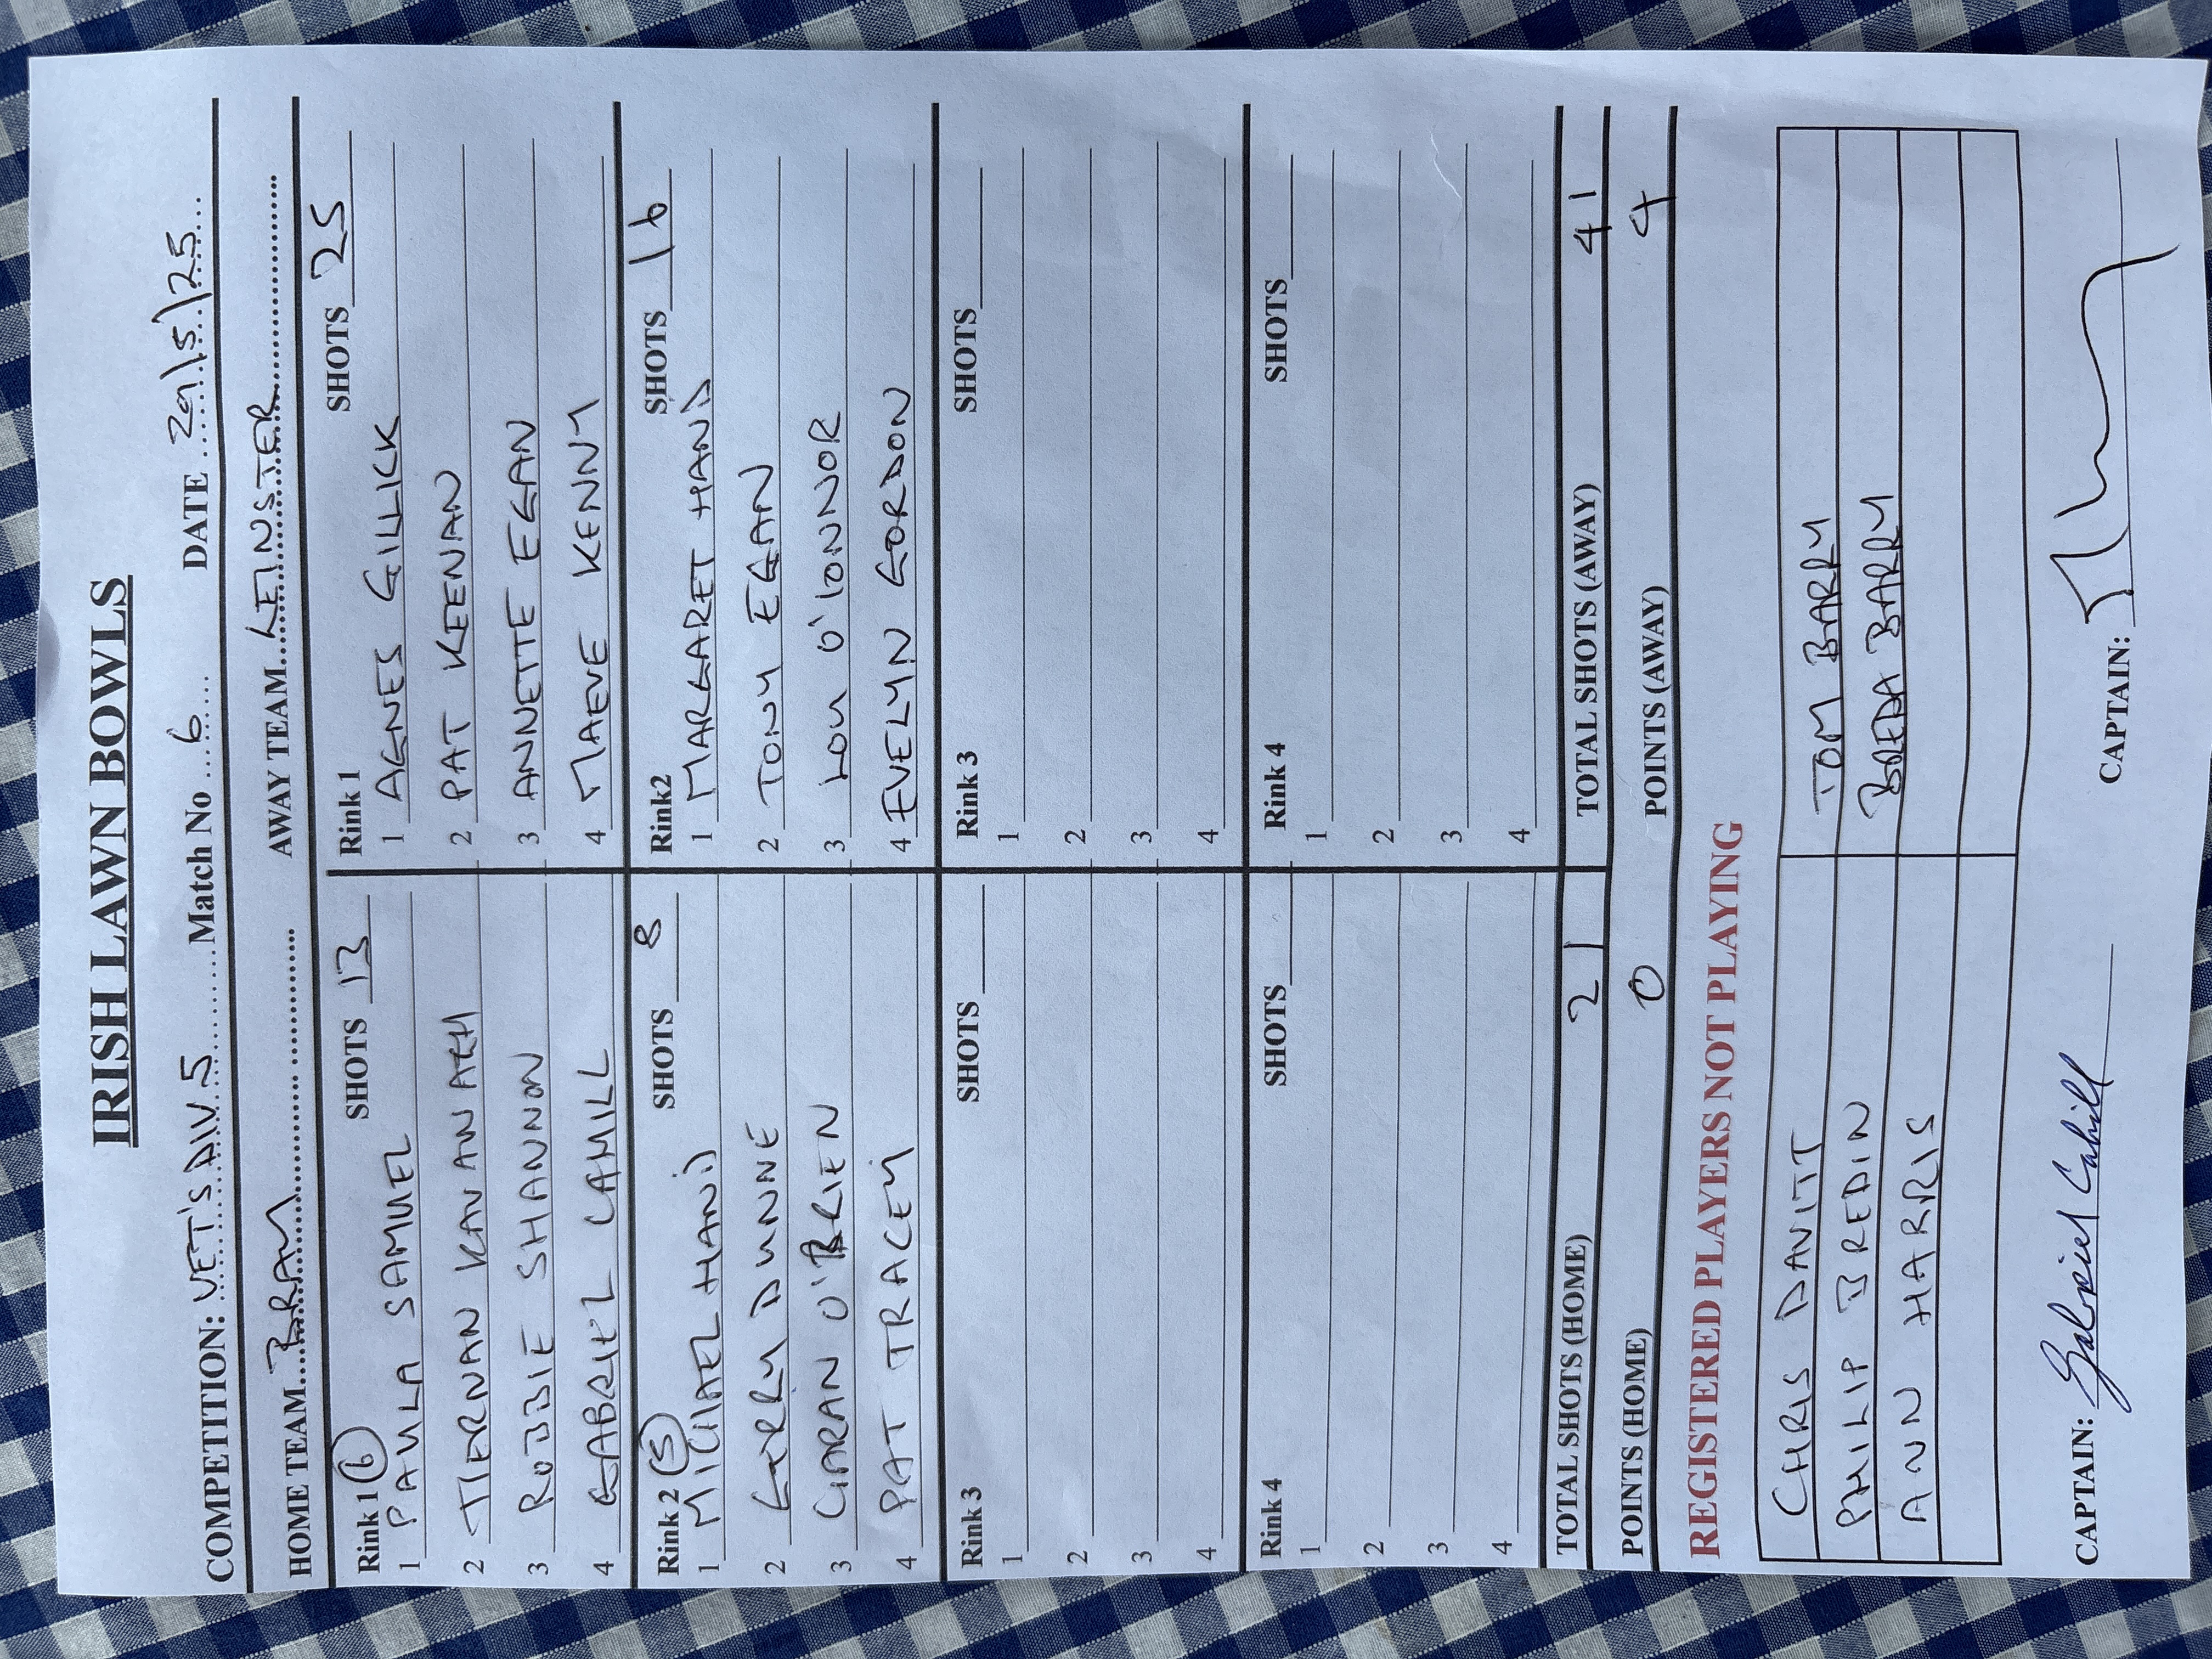 IRISH LAWN BOWLS
COMPETITION: VET'S DIV 5 Match No 6 DATE 29/5/25
HOME TEAM BRAY AWAY TEAM LEINSTER
Rink 1 (6) SHOTS 13
1 PAULA SAMUEL
2 TIERNAN KAVANAGH
3 ROBBIE SHANNON
4 GABRIEL CAHILL
Rink 1 SHOTS 25
1 AGNES GILLICK
2 PAT KEENAN
3 ANNETTE EGAN
4 MAEVE KENNY
Rink 2 (5) SHOTS 8
1 MICHAEL HAND
2 GERRY DUNNE
3 CIARAN O'BRIEN
4 PAT TRACEY
Rink2 SHOTS 16
1 MARGARET HAND
2 TONY EGAN
3 LOU O'CONNOR
4 EVELYN GORDON
Rink 3 SHOTS
1
2
3
4
Rink 3 SHOTS
1
2
3
4
Rink 4 SHOTS
1
2
3
4
Rink 4 SHOTS
1
2
3
4
TOTAL SHOTS (HOME) 21 TOTAL SHOTS (AWAY) 41
POINTS (HOME) 0 POINTS (AWAY) 4
REGISTERED PLAYERS NOT PLAYING
CHRIS DAVITT TOM BARRY
PHILIP BREDIN BREDA BARRY
ANN HARRIS
CAPTAIN: Gabriel Cahill CAPTAIN: